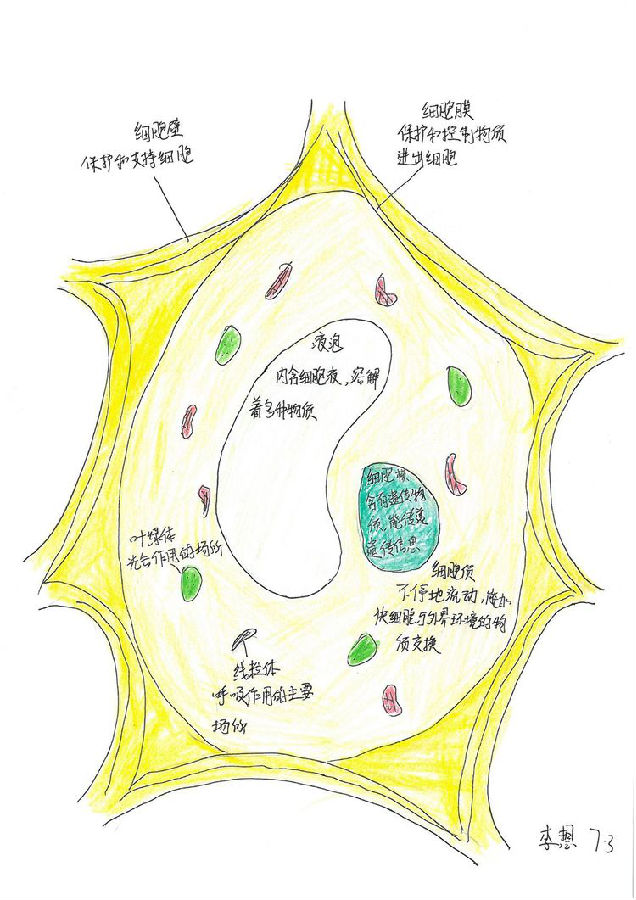 细胞壁
保护和支持细胞
细胞膜
保护和控制物质
进出细胞
液泡
内含细胞液，溶解
着多种物质
细胞核
含有遗传物
质，能传递
遗传信息
叶绿体
光合作用的场所
细胞质
不停地流动，加
快细胞与外界环境的物
质交换
线粒体
呼吸作用的主要
场所
李想 7.3